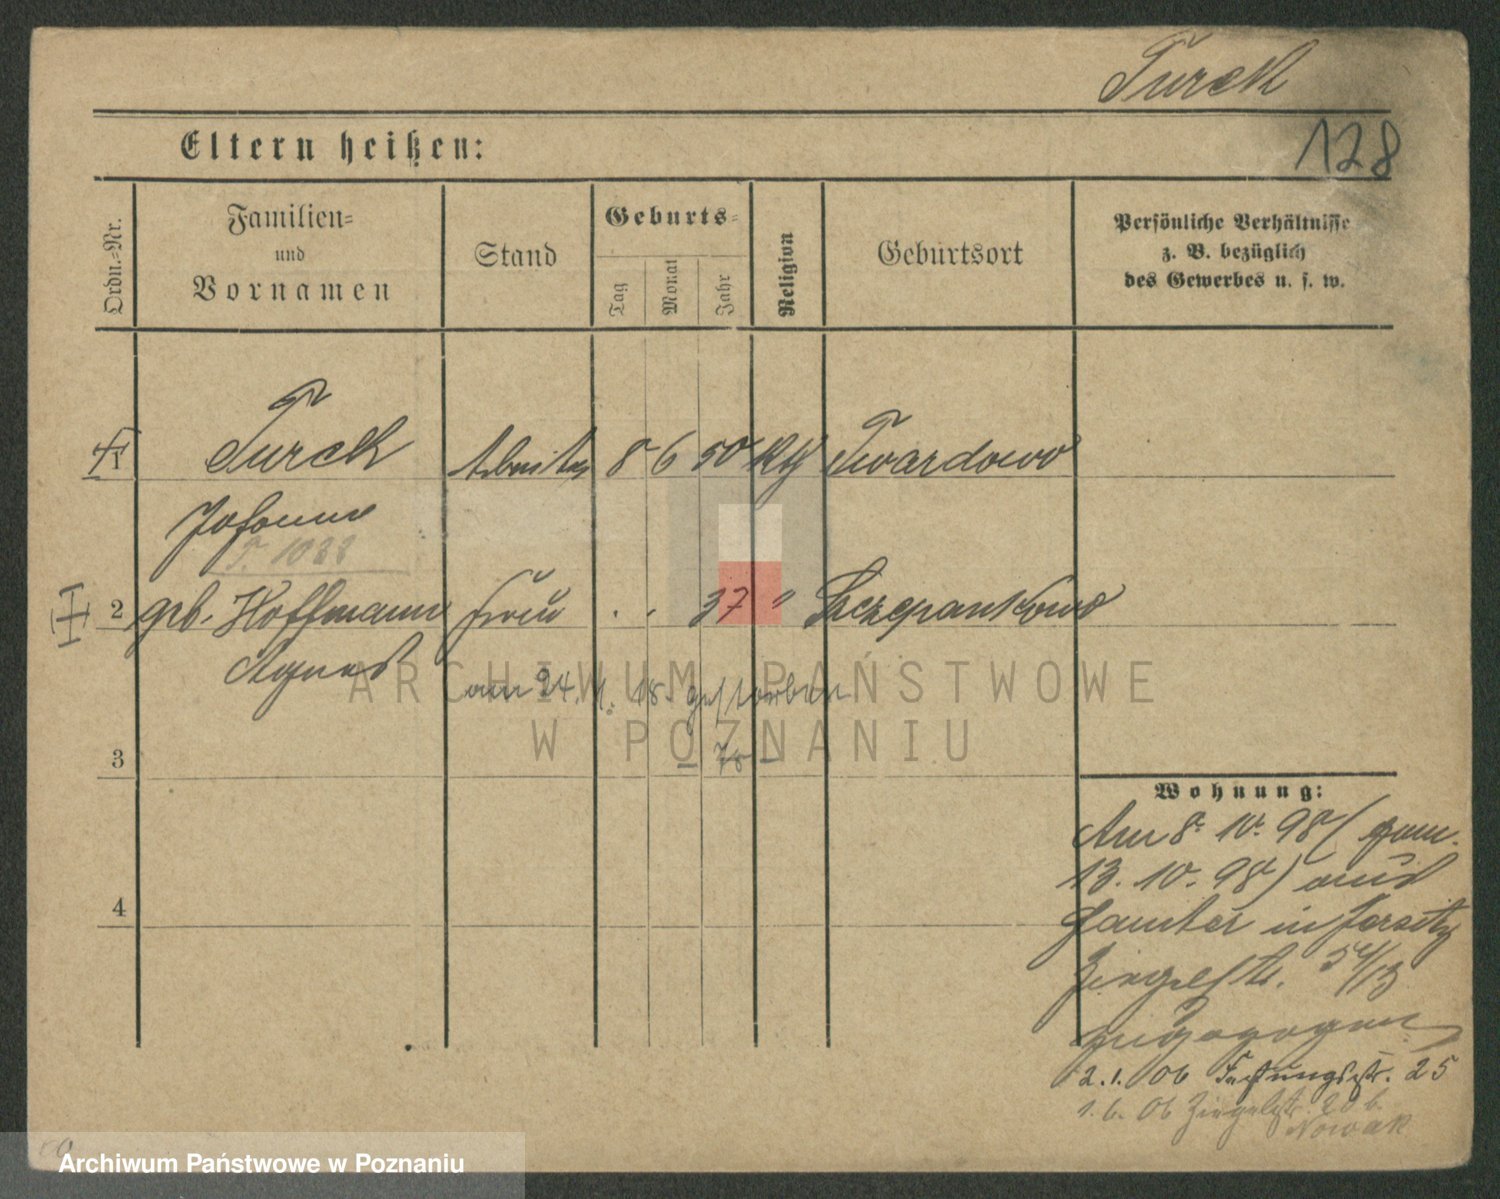 Turck
128
Eltern heißen:
Ordn.-Nr.
Familien-
und
Vornamen
Stand
Geburts-
Tag
Monat
Jahr
Religion
Geburtsort
Persönliche Verhältnisse
z. B. bezüglich
des Gewerbes u. s. w.
1 Turck Arbeiter 8 6 50 kth Twardowo
Johann
T. 1022
2 geb. Hoffmann Frau 37 " Szczepankowo
Agnes
am 24. 1. 18. gestorben
3
4
Wohnung:
Am 8. 10. 98 (gem.
13. 10. 98) aus
Samter in Jersitz
Ziegelstr. 54/13
zugezogen
2. 1. 06 Festungsstr. 25
1. 6. 06 Ziegelstr. 20 b.
Nowak
ARCHIWUM PAŃSTWOWE
W POZNANIU
Archiwum Państwowe w Poznaniu